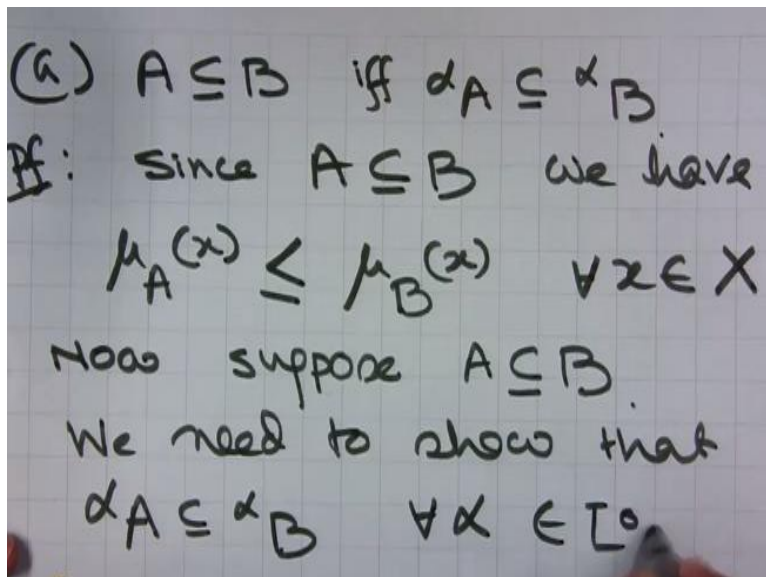 (a) A ⊆ B iff αA ⊆ αB.
Pf: Since A ⊆ B we have
μA(x) ≤ μB(x) ∀x ∈ X
Now suppose A ⊆ B.
We need to show that
αA ⊆ αB ∀α ∈ [0